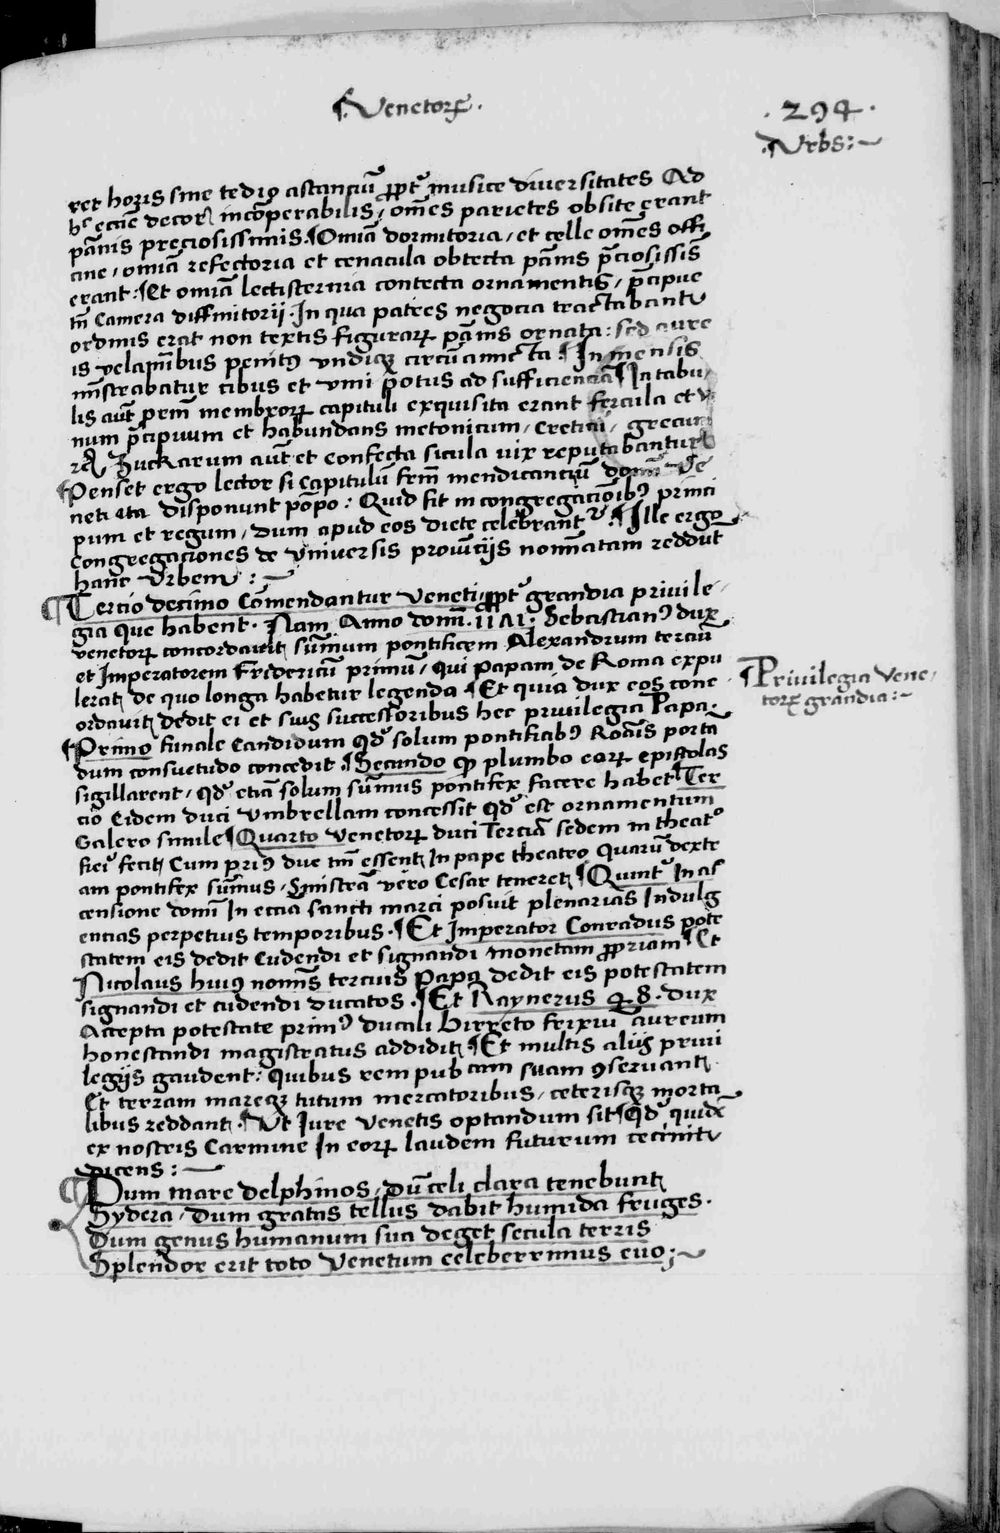 ¶Venetorꝝ.
.294.
.Urbs:~
ret horis sine tedio astanciū ꝓpt᷑ musice diversitates Ad
h᷑ eccīe decor᷑ incōperabilis, om̄es parietes obsite erant
pānis preciosissimis.¶Omiā dormitoria, et celle om̄es offi
cine, omiā refectoria et cenacula obtecta pānis p̄ciosissīs
erant:¶Et omiā lectisternia contecta ornamentis, p̄cipue
tn̄ Camera diffinitorii.In qua patres negocia tractabant᷑
ordinis erat non textis figurarꝝ pānis ornata: sed aure
is velamībus penitꝰ undiqꝫ circūamicta.¶In mensis
mīstrabatur cibus et vini potus ad sufficienciā¶In tabu,
lis aut̄ prem̄ membrorꝝ capituli exquisita erant fercula et vi
num p̄cipuum et habundans metonicum, creticū, grecum
⁊c̄ Zuckarum aut̄ et confecta sicula vix reputabantur
¶Penset ergo lector si Capitulū frm̄ mendicanciū domī Ve
neti ita disponunt pōpo: Quid fit in congregaciōibꝰ princi
pum et regum, dum apud eos diete celebrant᷑.¶Ille ergo
congregaciones de universis provīcijs nomīatam reddūt
hanc Urbem:~
¶Tercio decimo Cōmendantur Veneti ꝓpt᷑ grandia privile,
gia que habent. Nam Anno domī.11Λ1. Sebastianꝰ dux
venetorꝝ concordavit sūmum pontificem Alexandrum terciū
et Imperatorem Fridericū primū, qui Papam de Roma expu
lerat, de quo longa habetur legenda ¶Et quia dux eos conc
ordavit dedit ei et suis successoribus hec privilegia Papa.
¶Primo funale Candidum qd᷑ solum pontificibꝰ Romīs porta
dum consuetudo concedit.¶Secundo ꝙ plumbo eorꝝ epistolas
sigillarent, qd᷑ etiā solum sūmus pontifex facere habet¶Ter
cio Eidem duci Umbrellam concessit qd᷑ est ornamentum
Galero simile¶Quarto Venetorꝝ duci Terciā sedem in theat᷑
fieri fecit, Cum priꝰ due tm̄ essent In pape theatro Quarū dextr
am pontifex sūmus, Sinistrā vero Cesar teneret¶Quint᷑ In as
censione domī In eccīa sancti marci posuit plenarias Indulg
encias perpetuis temporibus.¶Et Imperator Conradus pote
statem eis dedit Cudendi et signandi monetam ꝓpriam¶Et
Nicolaus huiꝰ nomīs tercius Papa dedit eis potestatem
signandi et cudendi ducatos.¶Et Raynerus q 8. dux
Accepta potestate primꝰ ducali birreto frixiū aureum
honestandi magistratus addidit.¶Et multis aliis privi
legijs gaudent: quibus rem publicam suam ꝯservant.
Et terram mareqꝫ tutum mercatoribus, ceterisqꝫ morta
libus reddant.¶Ut Jure Venetis optandum sit¶qd᷑ quidā
ex nostris Carmine In eorꝝ laudem futurum cecinit
dicens:~
Privilegia Vene,
torꝝ grandia:~
¶Dum mare delphinos, dū celi clara tenebunt
Sydera, dum gratas tellus dabit humida fruges.
Dum genus humanum sua deget secula terris
Splendor erit toto Venetum celeberrimus evo;~